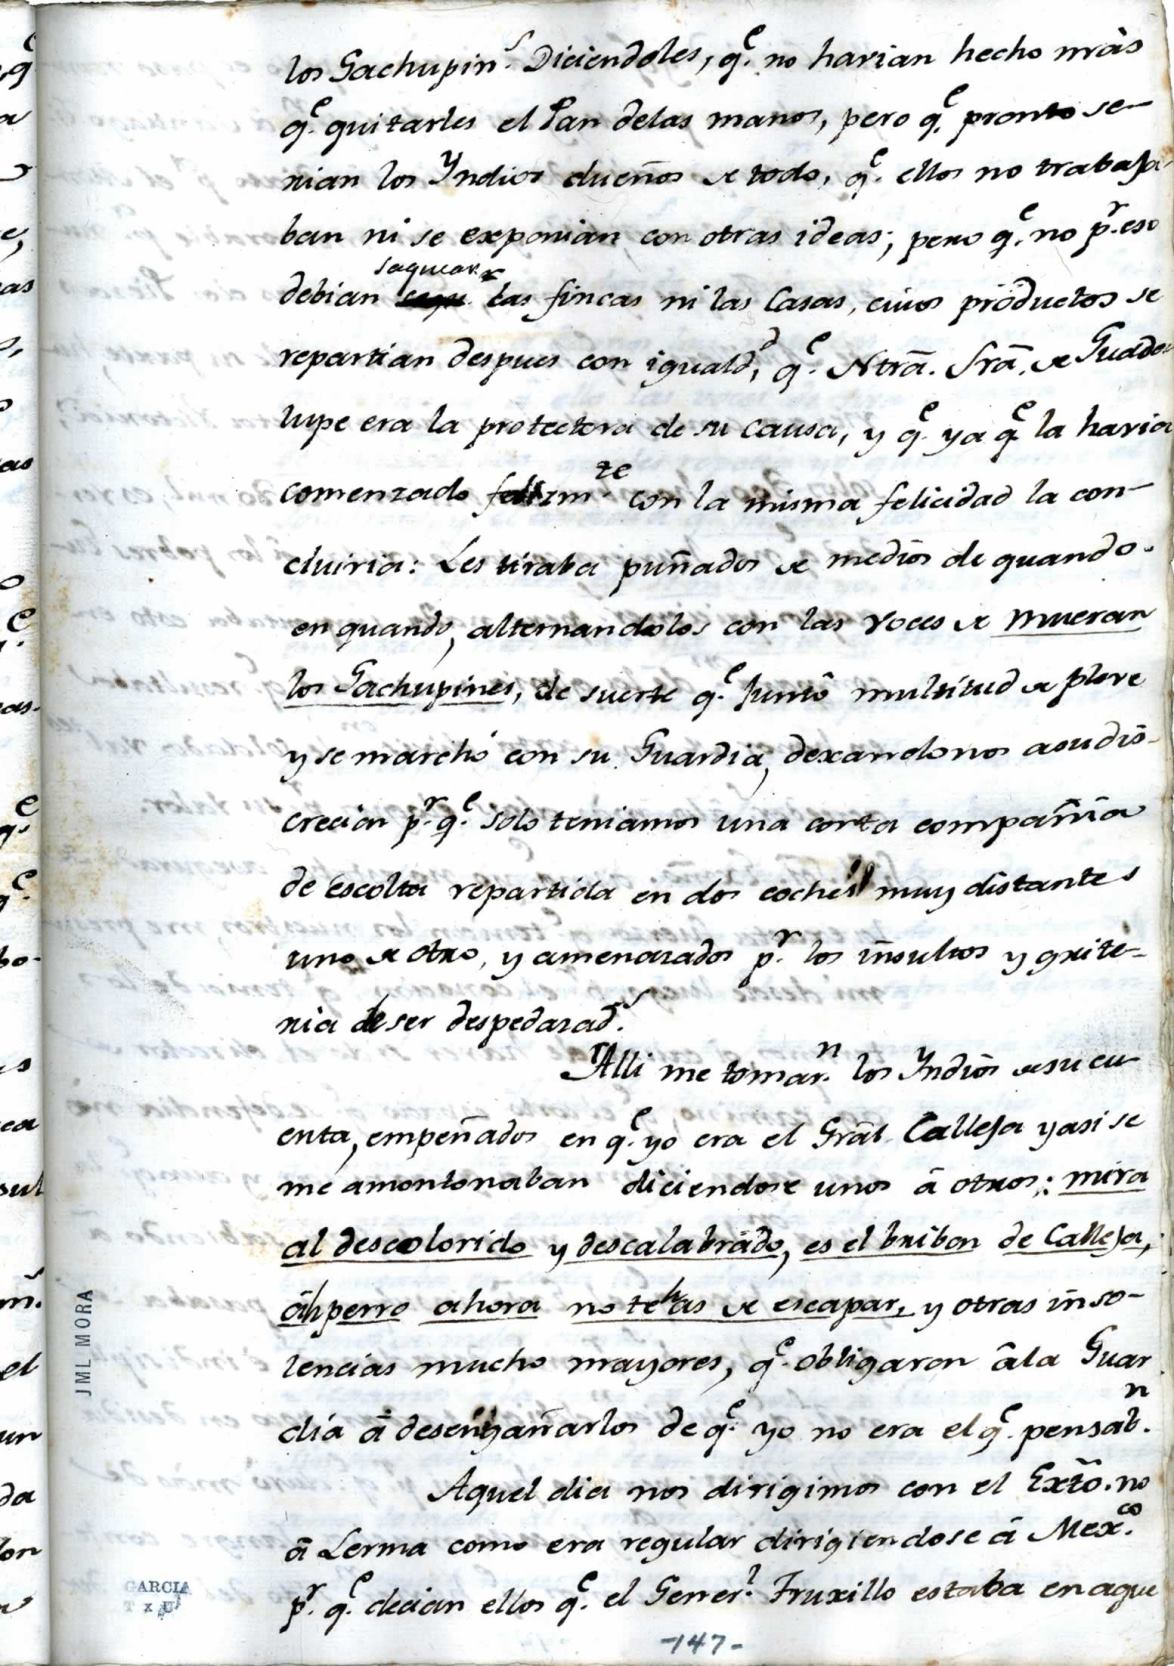 los Gachupin.s Diciendoles, q.e no harian hecho más
q.e quitarles el Pan delas manos, pero q.e pronto se-
rian los Yndios dueños de todo, q.e ellos no trabaja-
ban ni se exponian con otras ideas; pero q.e no p.r eso
debian saquear las fincas ni las Casas, cuios productos se
repartian despues con iguald.d, q.e Ntrã. Srã. de Guada
lupe era la protectora de su causa, y q.e ya q.e la havia
comenzado felizm.te con la misma felicidad la con-
cluiria: Les tiraba puñados de medios de quando
en quando, alternandolos con las voces de mueran
los Gachupines, de suerte q.e juntó multitud de pleve
y se marchó con su Guardia, dexandonos a su dis-
crecion p.r q.e solo teniamos una corta compañia
de escolta repartida en dos coches muy distantes
uno de otro, y amenazados p.r los insultos y grite-
ria de ser despedazad.s
Alli me tomar.n los Yndios de su cu
enta, empeñados en q.e yo era el Grãl. Calleja y asi se
me amontonaban diciendose unos á otros: mira
al descolorido y descalabrado, es el bribon de Calleja,
áh perro ahora no te has de escapar, y otras inso-
lencias mucho mayores, q.e obligaron á la Guar
dia á desengañarlos de q.e yo no era el q.e pensab.n
Aquel dia nos dirigimos con el Extõ. no
á Lerma como era regular dirigiendose á Mex.co
p.r q.e decian ellos q.e el Gener.l Truxillo estaba en aque
-147-
JML MORA
GARCIA